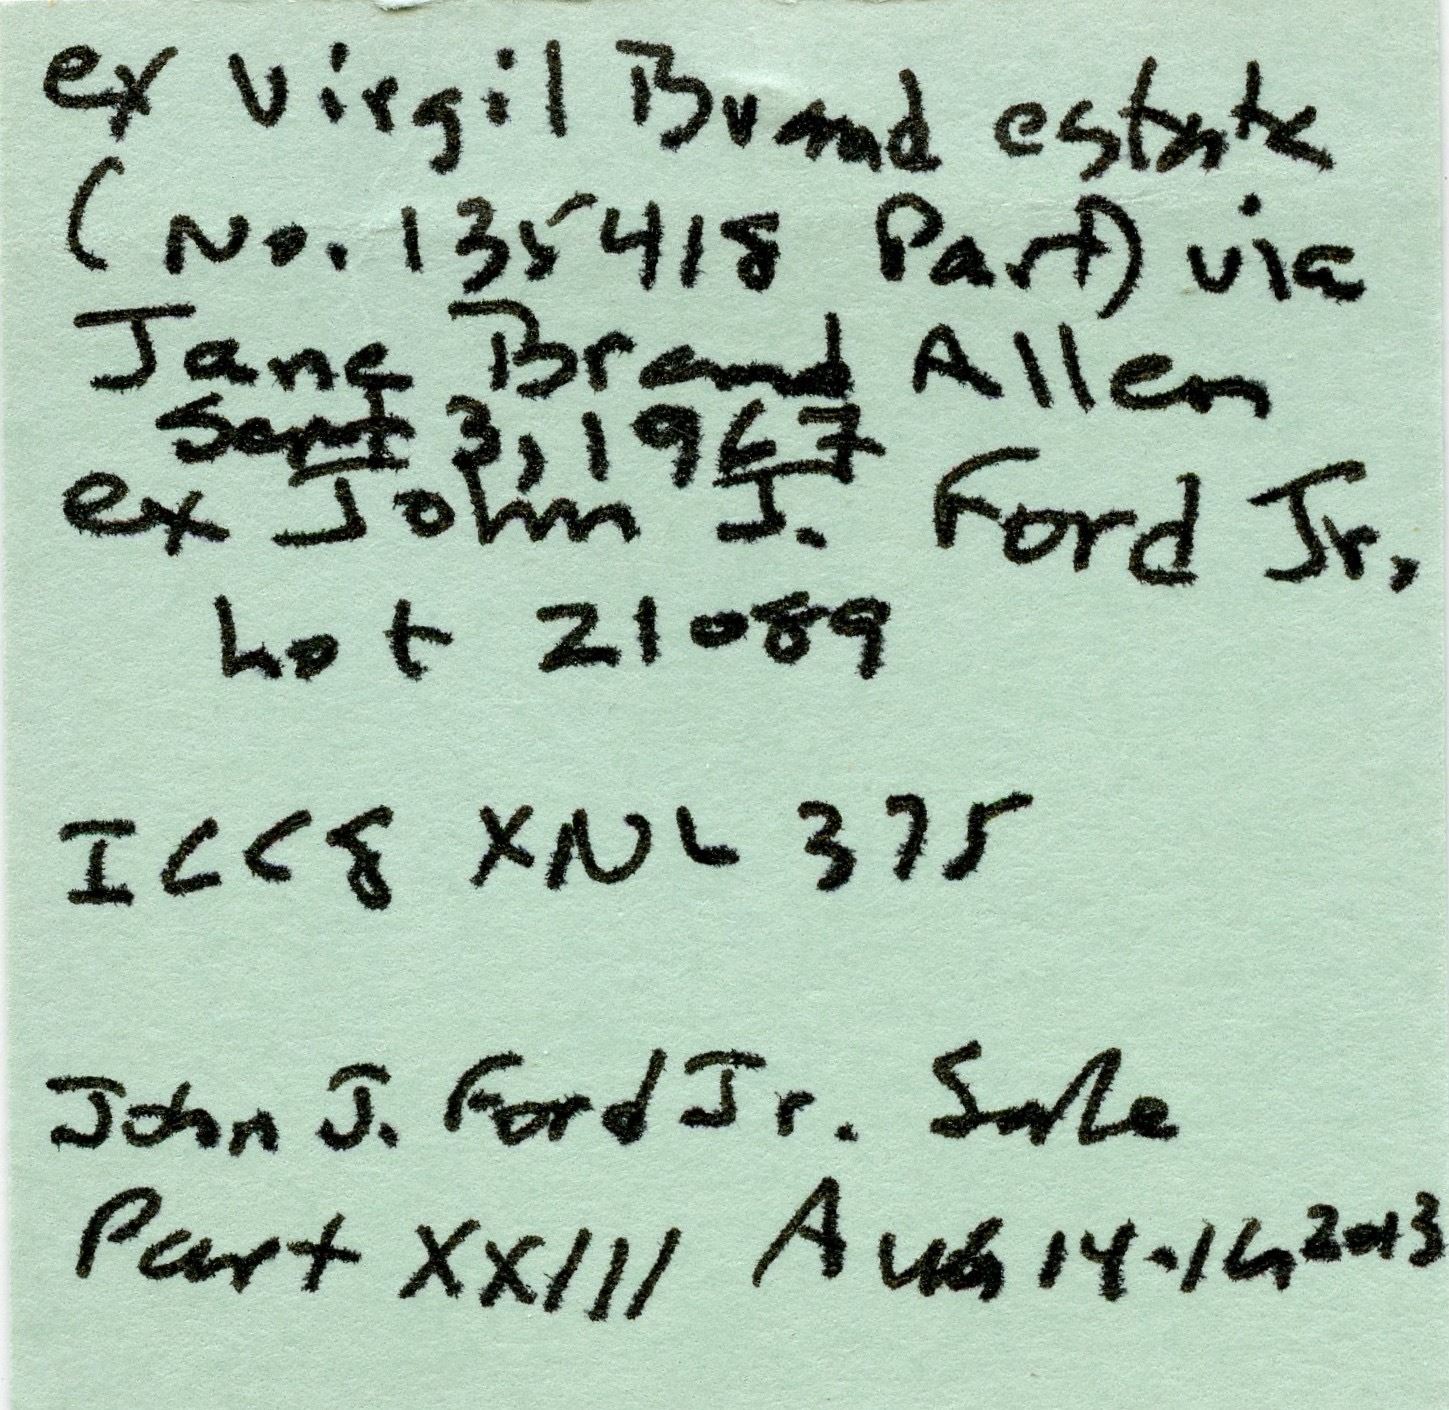 ex Virgil Brand estate
(No. 135418 Part) via
Jane Brand Allen
Sept 3, 1967
ex John J. Ford Jr.
Lot 21089
ICC8 XNL 375
John J. Ford Jr. Sale
Part XXIII Aug 14-16, 2013